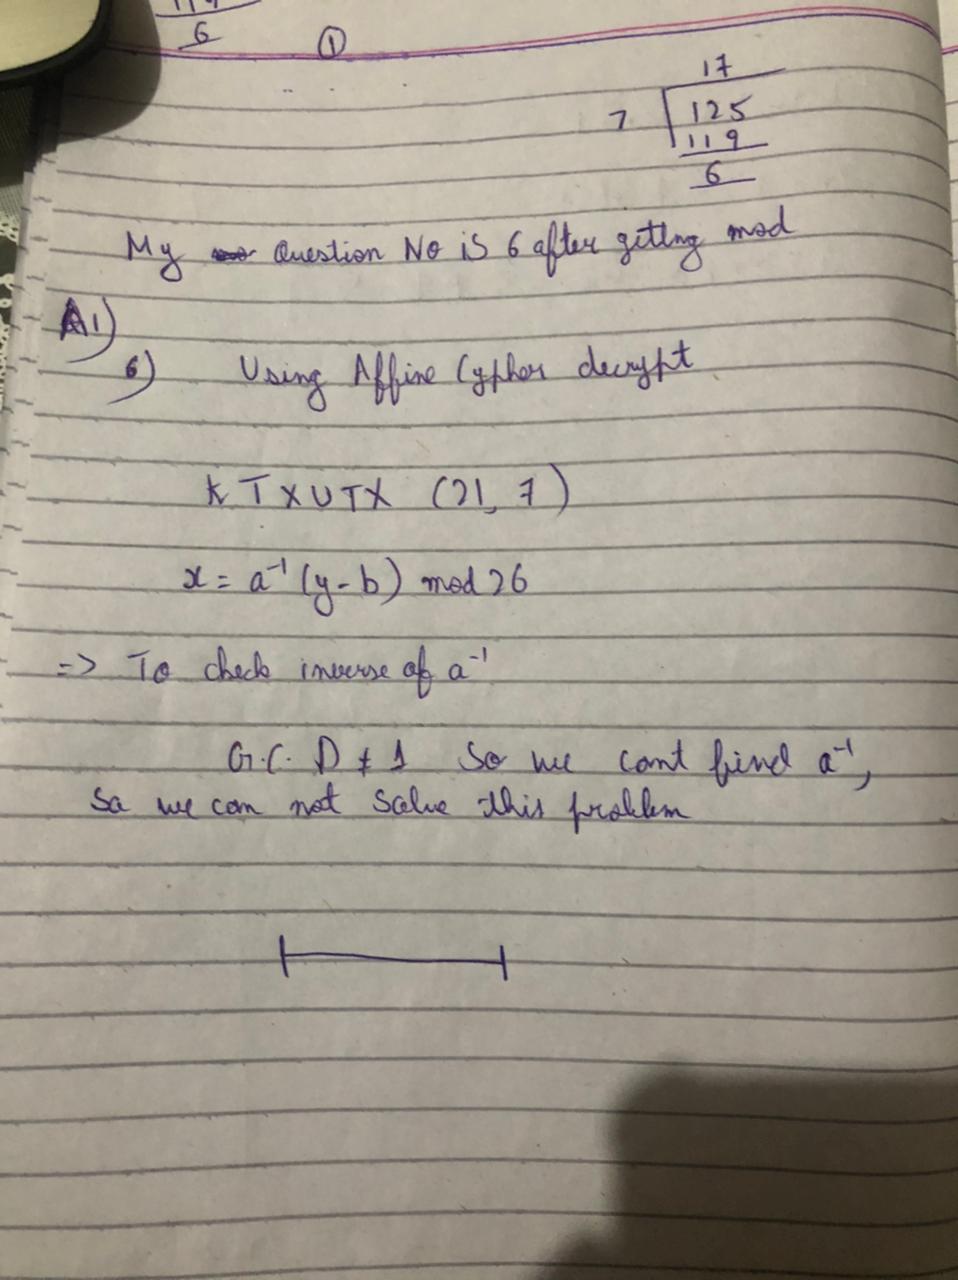 6
①
17
7 125
119
6
My Question No is 6 after getting mod
A1)
6) Using Affine Cypher decrypt
KTXUTX (21, 7)
x = a⁻¹ (y - b) mod 26
=> To check inverse of a⁻¹
G.C.D ≠ 1 So we cant find a⁻¹,
So we can not Solve this problem